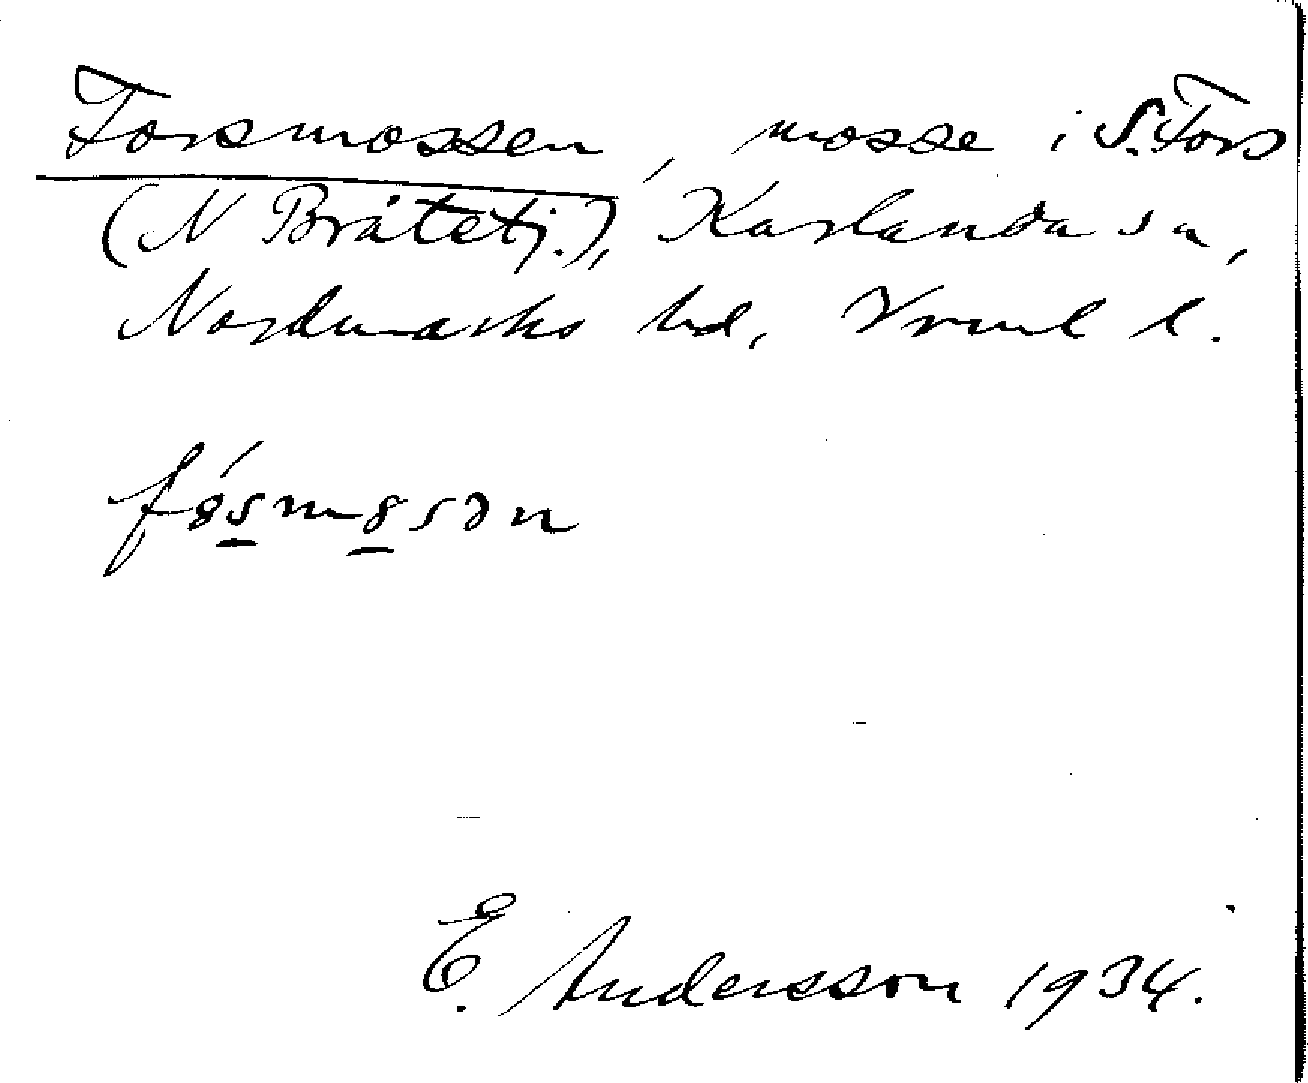 Forsmossen, mosse i S. Fors
(N Bråtetj.), Karlanda sn,
Nordmarks hd, Vrml l.
E. Andersson 1934.